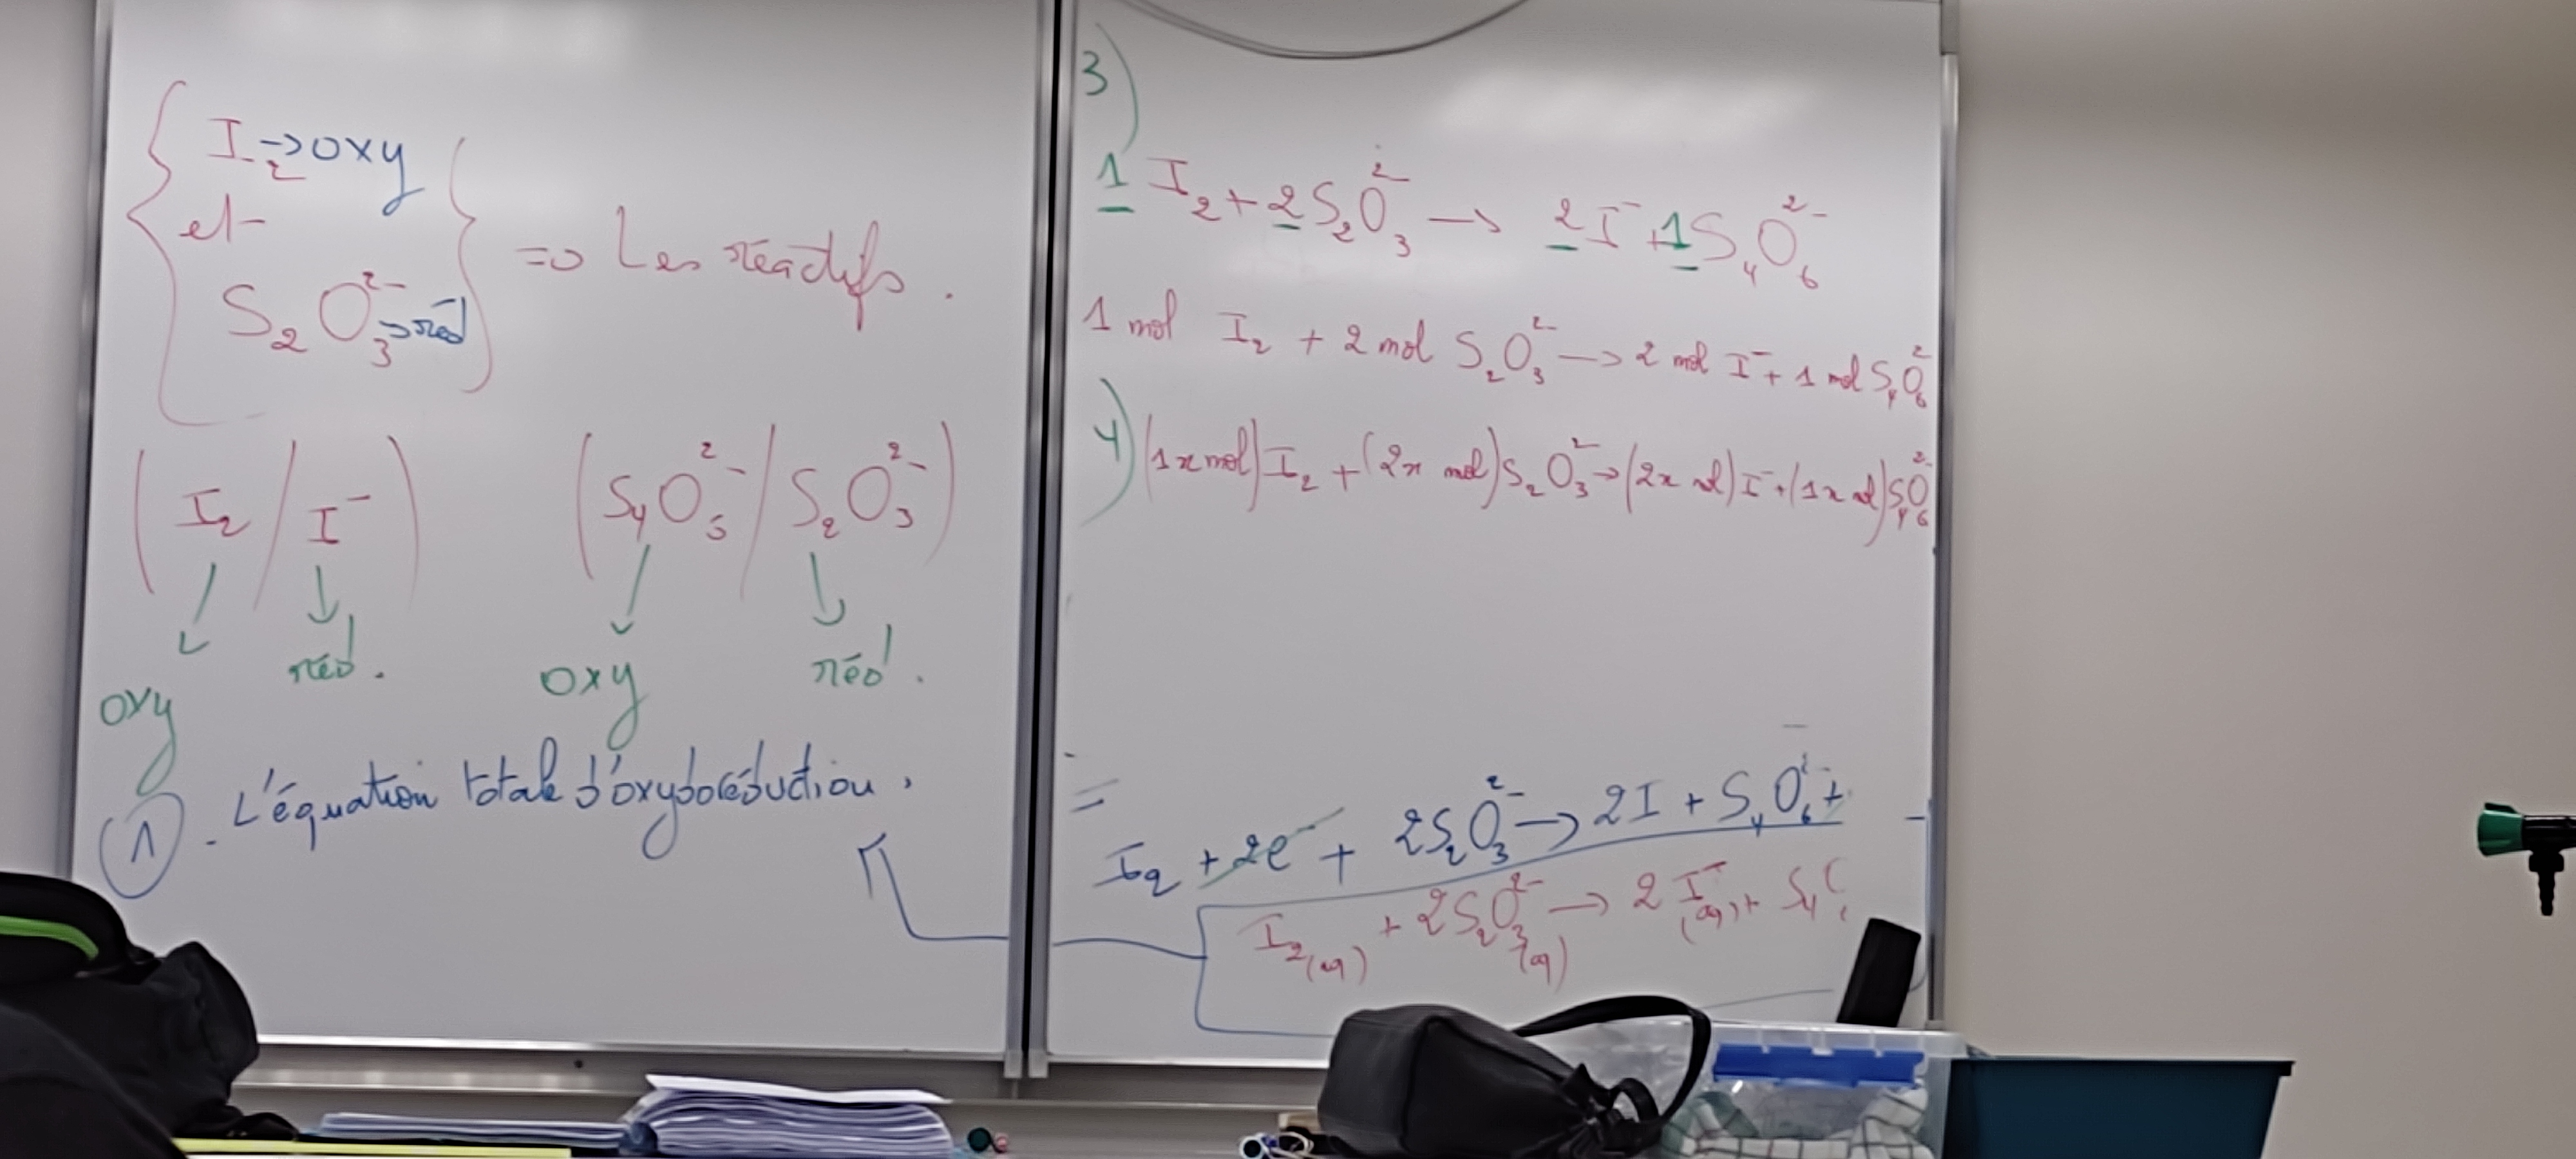 I₂ → oxy
et
S₂O₃²⁻ → réd
=> Les réactifs.
(I₂ / I⁻) (S₄O₅²⁻ / S₂O₃²⁻)
oxy réd. oxy réd.
① - L'équation totale d'oxydoréduction.
3)
1 I₂ + 2 S₂O₃²⁻ → 2 I⁻ + 1 S₄O₆²⁻
1 mol I₂ + 2 mol S₂O₃²⁻ → 2 mol I⁻ + 1 mol S₄O₆²
4) (1x mol) I₂ + (2x mol) S₂O₃²⁻ → (2x mol) I⁻ + (1x mol) S₄O₆²⁻
=
I₂ + 2e⁻ + 2S₂O₃²⁻ → 2I + S₄O₆²⁻ +
I₂(aq) + 2S₂O₃²⁻(aq) → 2 I⁻(aq) + S₄